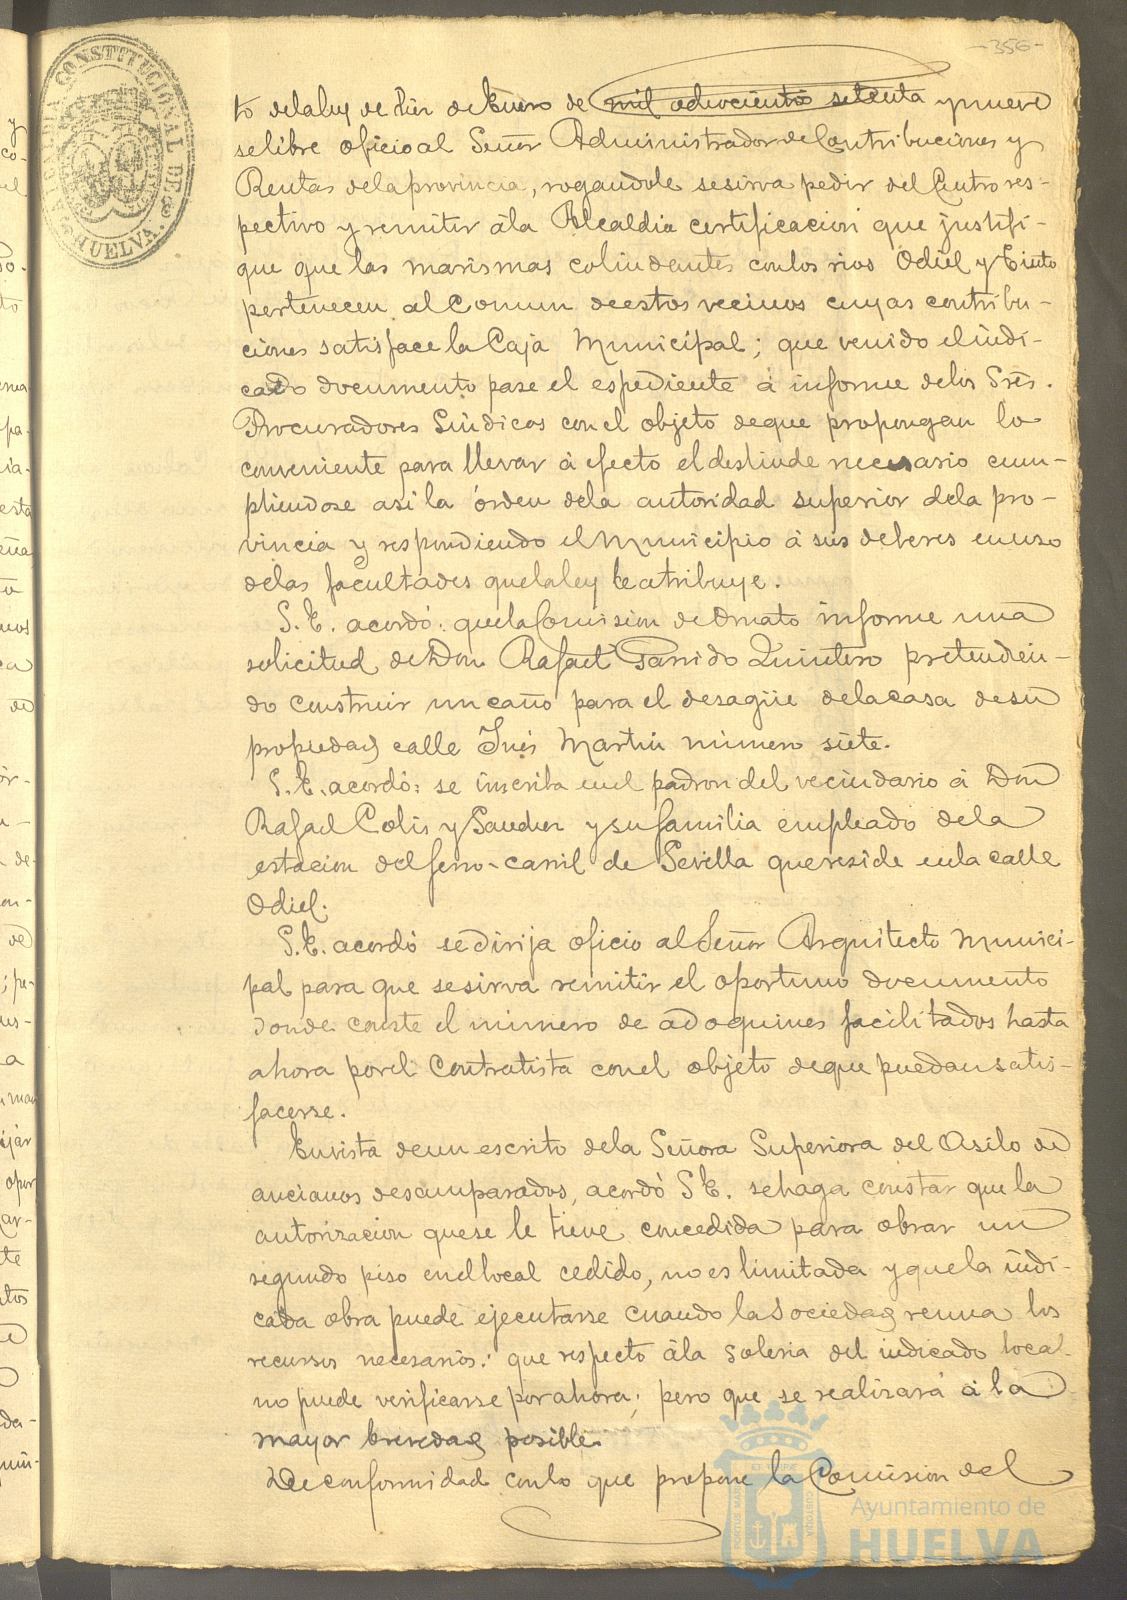 -356-
ALCALDIA CONSTITUCIONAL DE HUELVA.
to dela ley de diez de Enero de mil ochocientos setenta y nueve
se libre oficio al Señor Administrador de Contribuciones y
Rentas dela provincia, rogandole se sirva pedir del Centro res-
pectivo y remitir á la Alcaldia certificacion que justifi-
que que las marismas colindantes con los rios Odiel y Tinto
pertenecen al Comun de estos vecinos cuyas contribu-
ciones satisface la Caja Municipal; que venido el indi-
cado documento pase el espediente á informe delos Sres.
Procuradores Sindicos con el objeto de que propongan lo
conveniente para llevar á efecto el deslinde necesario cum-
pliendose asi la órden dela autoridad superior dela pro-
vincia y respondiendo el Municipio á sus deberes en uso
delas facultades que la ley le atribuye.
S. E. acordó: que la Comision de Ornato informe una
solicitud de Don Rafael Garrido Quintero pretendien-
do construir un caño para el desagüe dela casa de su
propiedad calle Inés Martin número siete.
S. E. acordó: se inscriba en el padron del vecindario á Don
Rafael Colis y Sanchez y su familia empleado dela
estacion del ferro-carril de Sevilla que reside en la calle
Odiel.
S. E. acordó se dirija oficio al Señor Arquitecto Munici-
pal para que se sirva remitir el oportuno documento
donde conste el número de adoquines facilitados hasta
ahora por el Contratista con el objeto de que puedan satis-
facerse.
En vista de un escrito dela Señora Superiora del Asilo de
ancianos desamparados, acordó S. E. se haga constar que la
autorizacion que se le tiene concedida para obrar un
segundo piso en el local cedido, no es limitada y que la indi-
cada obra puede ejecutarse cuando la Sociedad reuna los
recursos necesarios: que respecto á la soleria del indicado local
no puede verificarse por ahora; pero que se realizará á la
mayor brevedad posible.
De conformidad con lo que propone la Comision del
PORTUS MARIS ET TERRÆ CUSTODIA
Ayuntamiento de
HUELVA